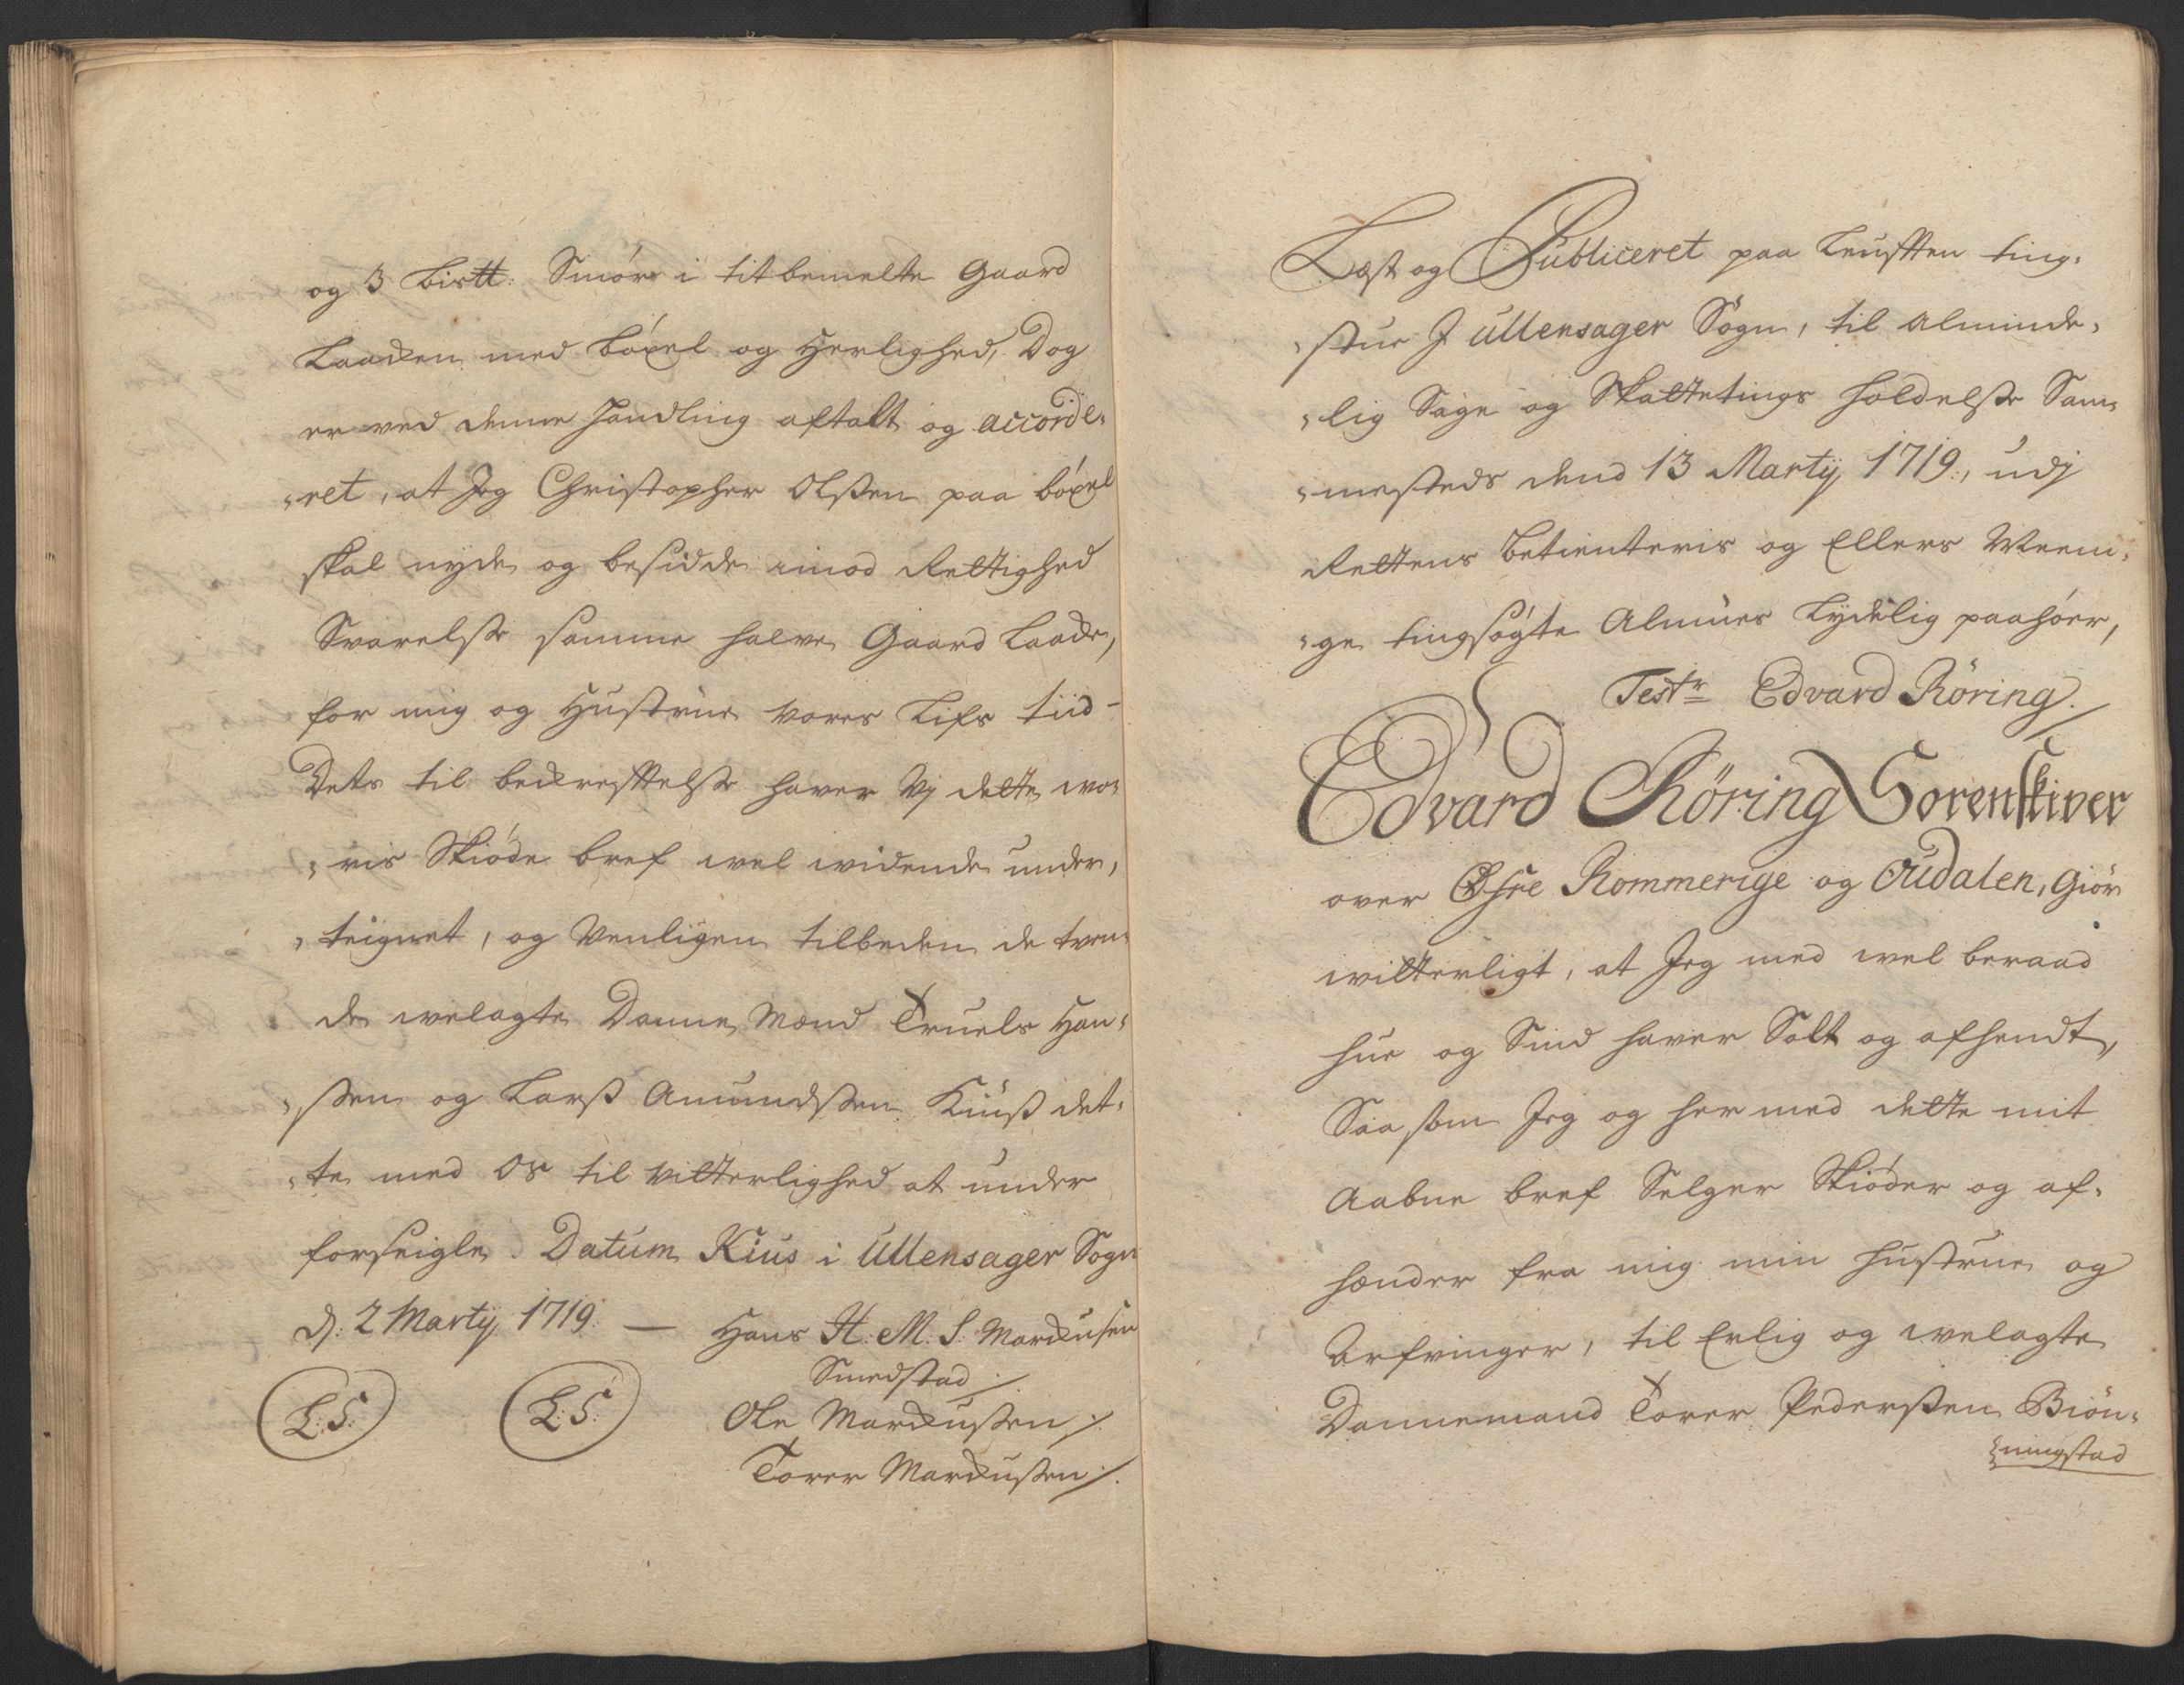 og 3 Bistt: Smör i titbemelte Gaard
Laacken med böxel og Herlighed, Dog
er ved denne Handling aftalt og accorde-
"ret, at Jeg Christopher Olßen paa böxel
skal nyde og besidde imod Rettighed
Svarelse samme halve Gaard Laacke,
for mig og Hustrue Vores Lifs tiid -
Dets til bekreftelse haver Vj dette wo-
"ris Skiöde bref wel widende under,
"teignet, og Venligen tilbeden de tven-
de welagte Danne Mænd Truels Han-
"sen og Larß Amundßen Kiuß det-
"te med Os til Vitterlighed at under
forseigle. Datum Kius i Ullensager Sogn
d: 2 Martij 1719. — Hans H. M. S. Marckusen
Smedstad ./.
L: S: L: S: Ole Marckußen ./.
Torer Marckußen ./.
Læst og Publiceret paa ting-
"stue J Ullensager Sogn, til Alminde-
"lig Sage og Skattetings holdelse Sam-
"mesteds dend 13 Martij 1719., udj
Rettens Betienteris og Ellers Meeni-
"ge tingsögte Almues Lydelig paahöer,
Testr Edvard Röring ./.
Edvard Röring Sorenskiver
over Öfre Rommerige og Oudalen, Giör
witterligt, at Jeg med wel beraad
hue og Sind haver Solt og afhendt,
Saa som Jeg og her med dette mit
Aabne bref Selger Skiöder og af-
hænder fra mig min Hustrue og
Arfvinger, til Erlig og welagte
Dannemand Torer Pederßen Biön-
"ningstad